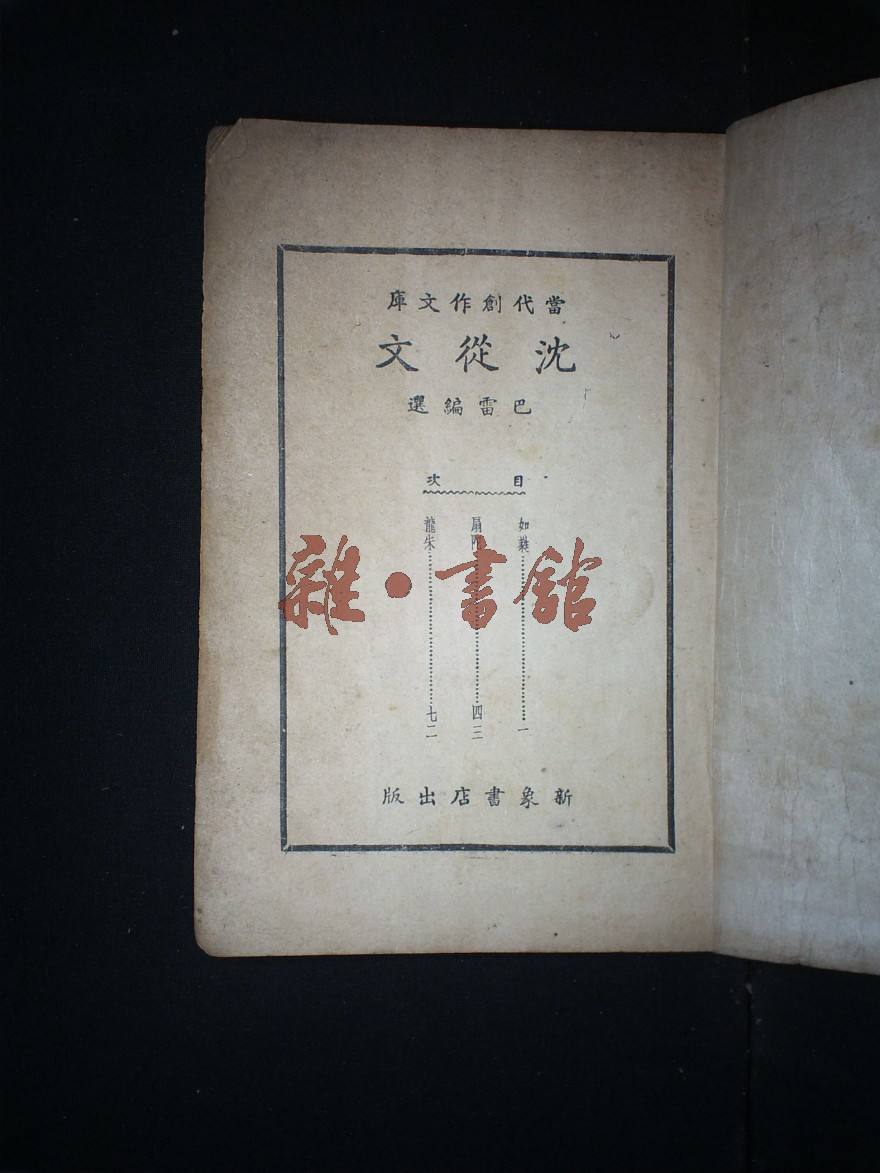 當代創作文庫
沈從文
巴雷編選
目次
如蕤……………………一
扇陀……………………四三
龍朱……………………七二
新象書店出版
雜·書館